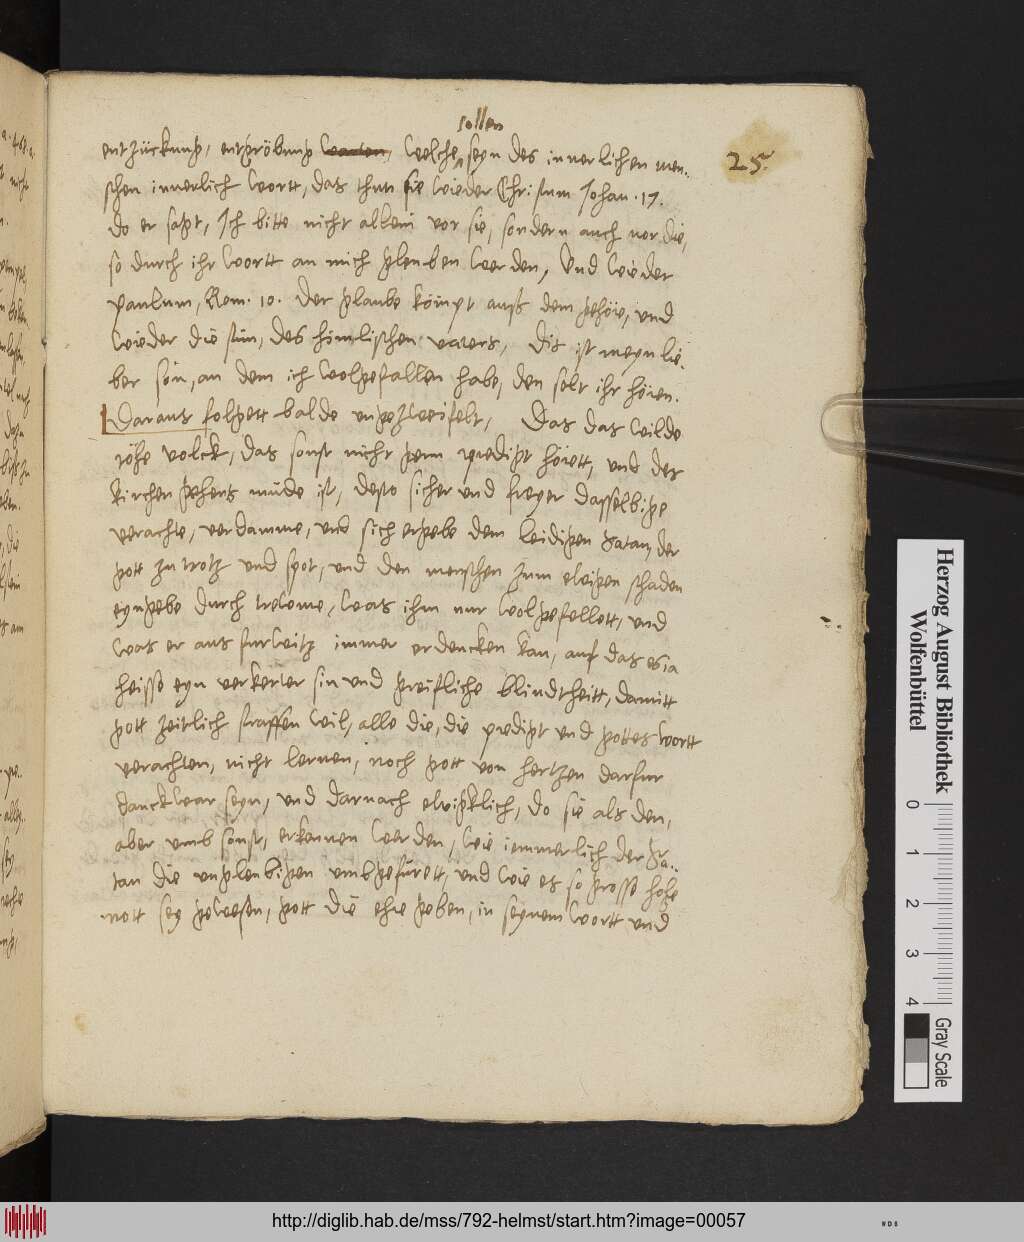 sollen
25.
entzückung, entgröbung warten, welche seyn des innerlichen men-
schen innerlich wortt, das thun sie wieder Christum Johan. 17.
do er sagt, Ich bitte nicht allein vor sie, sondern auch vor die,
so durch ihr wortt an mich gleuben werden, Und wieder
Paulum, Rom. 10. Der glaube kömpt auss dem gehöre, und
wieder die stim, des himlischen vaters, Dis ist meyn lie-
ber son, an dem ich wolgefallen habe, den solt ihr hören.
Daraus folgett balde ungezweifelt, Das das wilde
rohe volck, das sonst nicht gern predigt hörett, und des
kirchen gehens müde ist, desto sicher und freyer dasselbige
verachte, verdamme, und sich ergebe dem leidigen Satan, der
gott zu trotz und spot, und den menschen zum ewigen schaden
eyngebe durch trewme, was ihm nur wolgefellett, und
was er aus furwitz immer erdencken kan, auf das es ia
heisse eyn verkerter sin und greifliche blindtheitt, damitt
gott zeitlich straffen wil, alle die, die predigt und gottes wortt
verachten, nicht lernen, noch gott von hertzen darfur
danckbar seyn, und darnach ewigklich, do sie als den,
aber umb sonst, erkennen werden, wie iemmerlich der Sa-
tan die ungleubigen umbgefürett, und wie es so grosse hohe
nott sey gewesen, gott die ehre geben, in seynem wortt und
Herzog August Bibliothek
Wolfenbüttel
0 1 2 3 4
Gray Scale
http://diglib.hab.de/mss/792-helmst/start.htm?image=00057